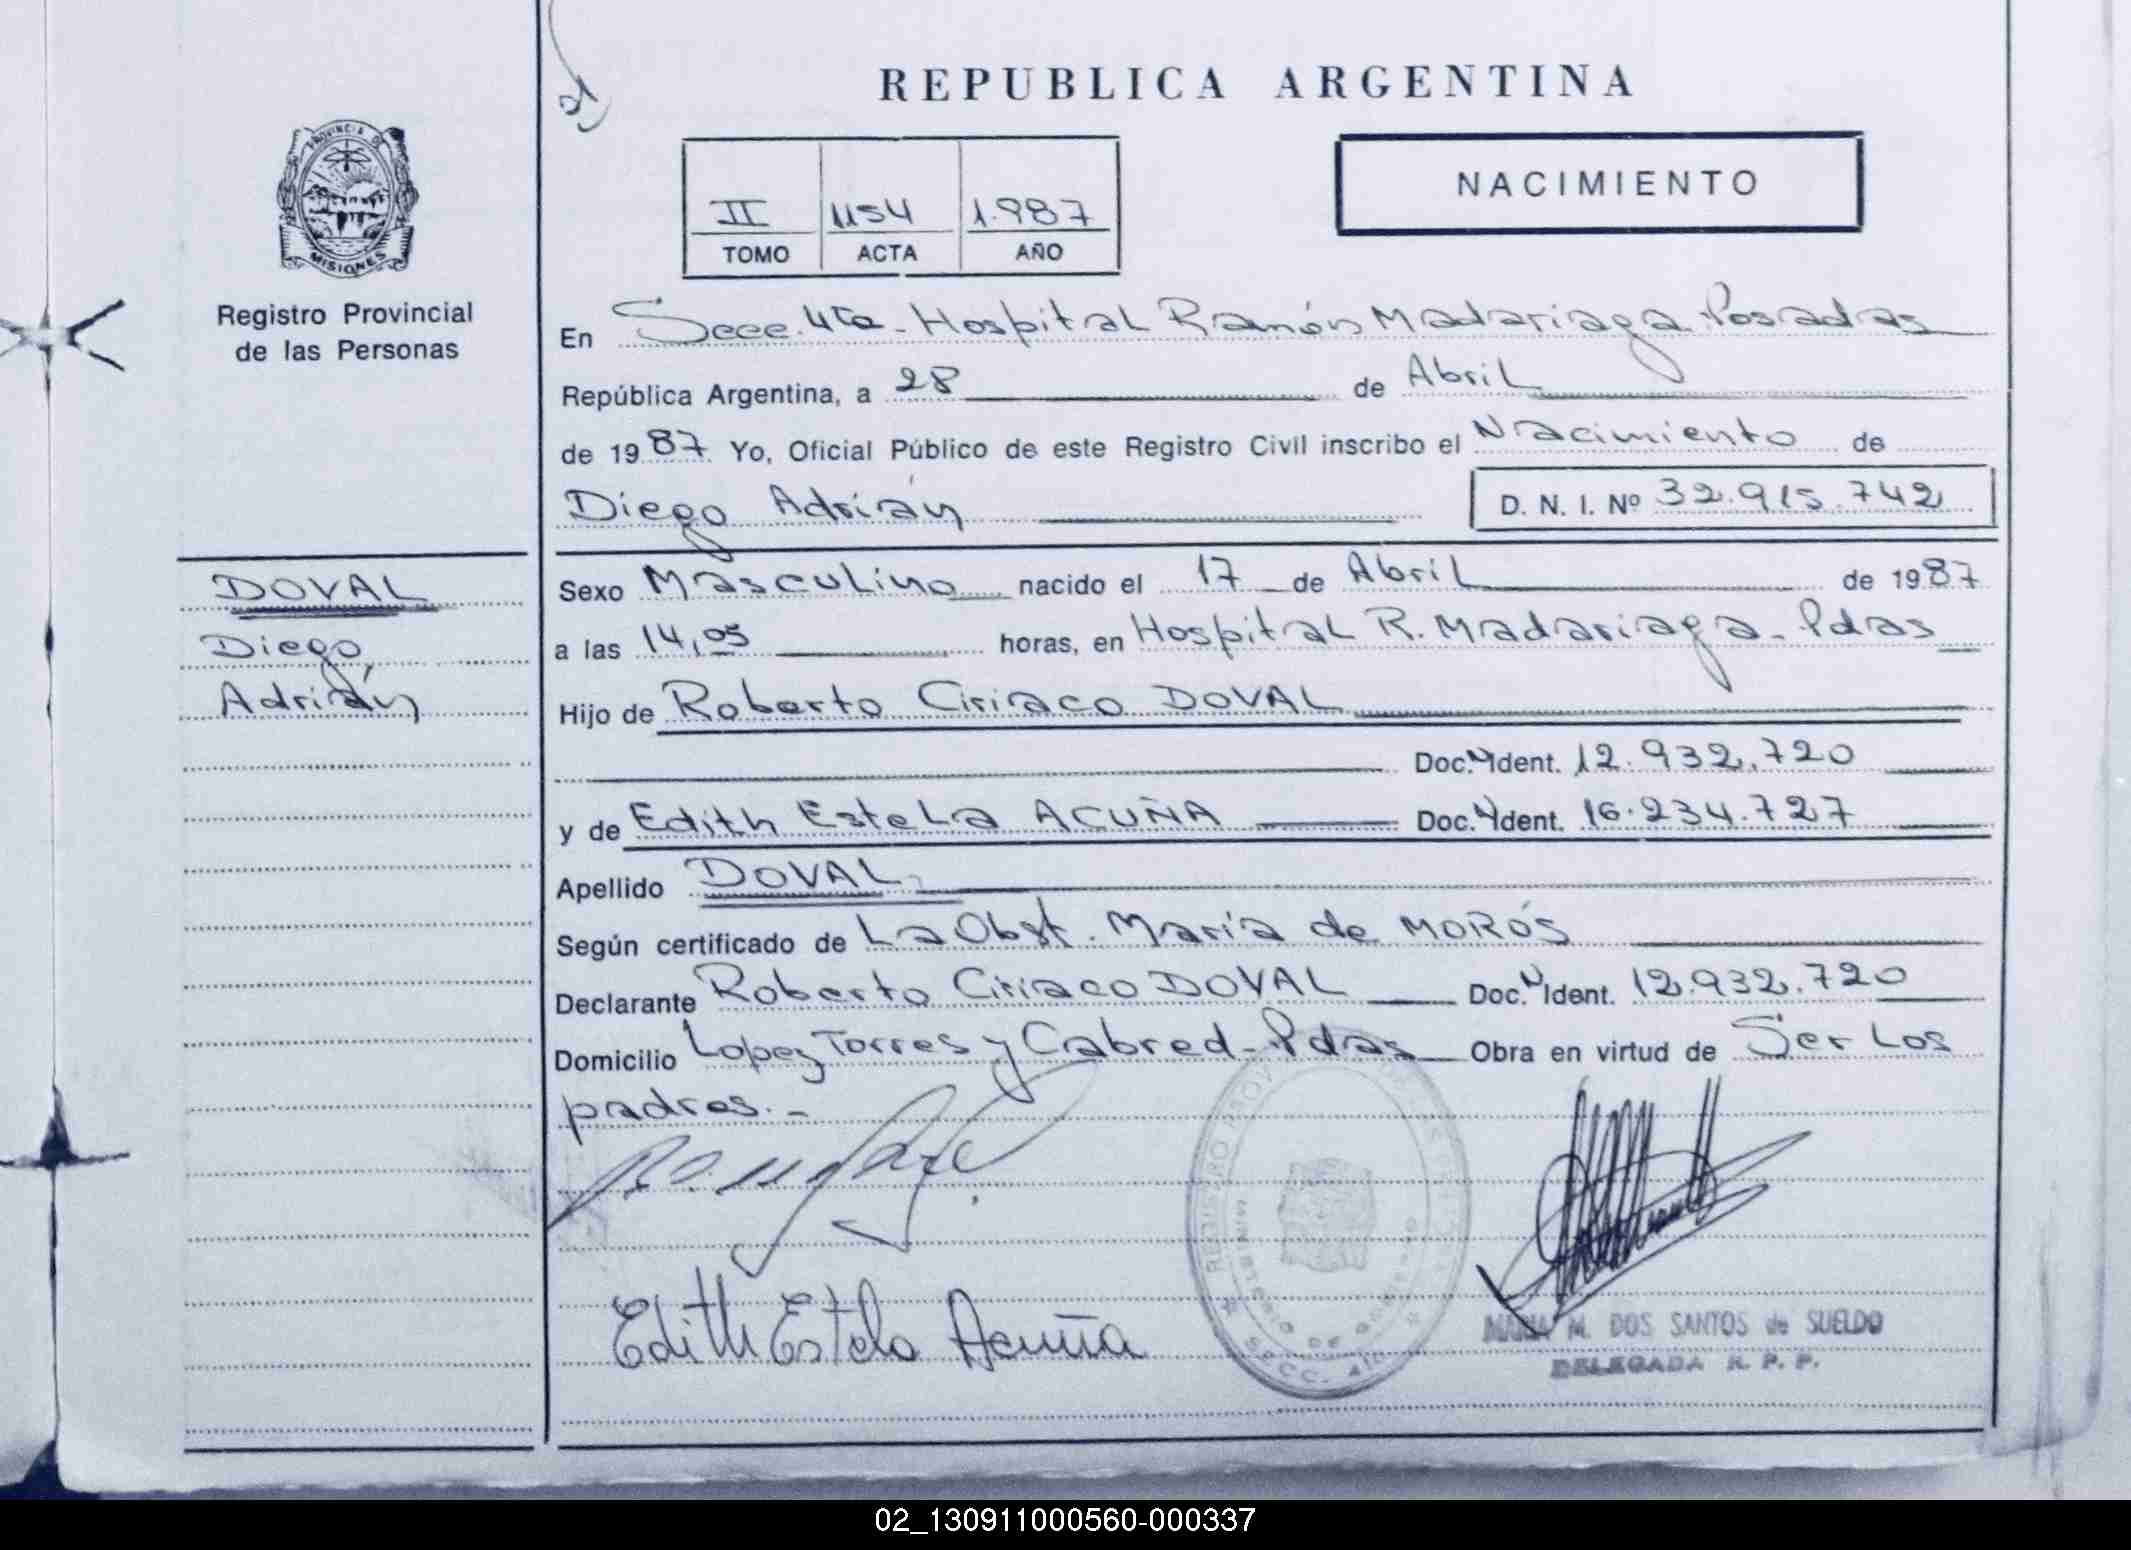 REPUBLICA ARGENTINA
PROVINCIA DE
MISIONES
Registro Provincial
de las Personas
II 1154 1.987
TOMO ACTA AÑO
NACIMIENTO
En Secc. 4ta - Hospital Ramón Madariaga. Posadas
República Argentina, a 28 de Abril
de 1987 Yo, Oficial Público de este Registro Civil inscribo el Nacimiento de
Diego Adrián D. N. I. Nº 32.915.742
DOVAL
Diego,
Adrián
Sexo Masculino nacido el 17 de Abril de 1987
a las 14,05 horas, en Hospital R. Madariaga - Pdas
Hijo de Roberto Ciriaco DOVAL
Doc. Ident. 12.932.720
y de Edith Estela ACUÑA Doc. Ident. 16.234.727
Apellido DOVAL
Según certificado de La Obst. María de MORÓS
Declarante Roberto Ciriaco DOVAL Doc. Ident. 12.932.720
Domicilio Lopez Torres y Cabred - Pdas Obra en virtud de Ser Los
padres. -
REGISTRO PROV DE
MINISTERIO DE GOBIERNO
SECC. 4
Edith Estela Acuña
MARIA M. DOS SANTOS de SUELDO
DELEGADA R. P. P.
02_130911000560-000337